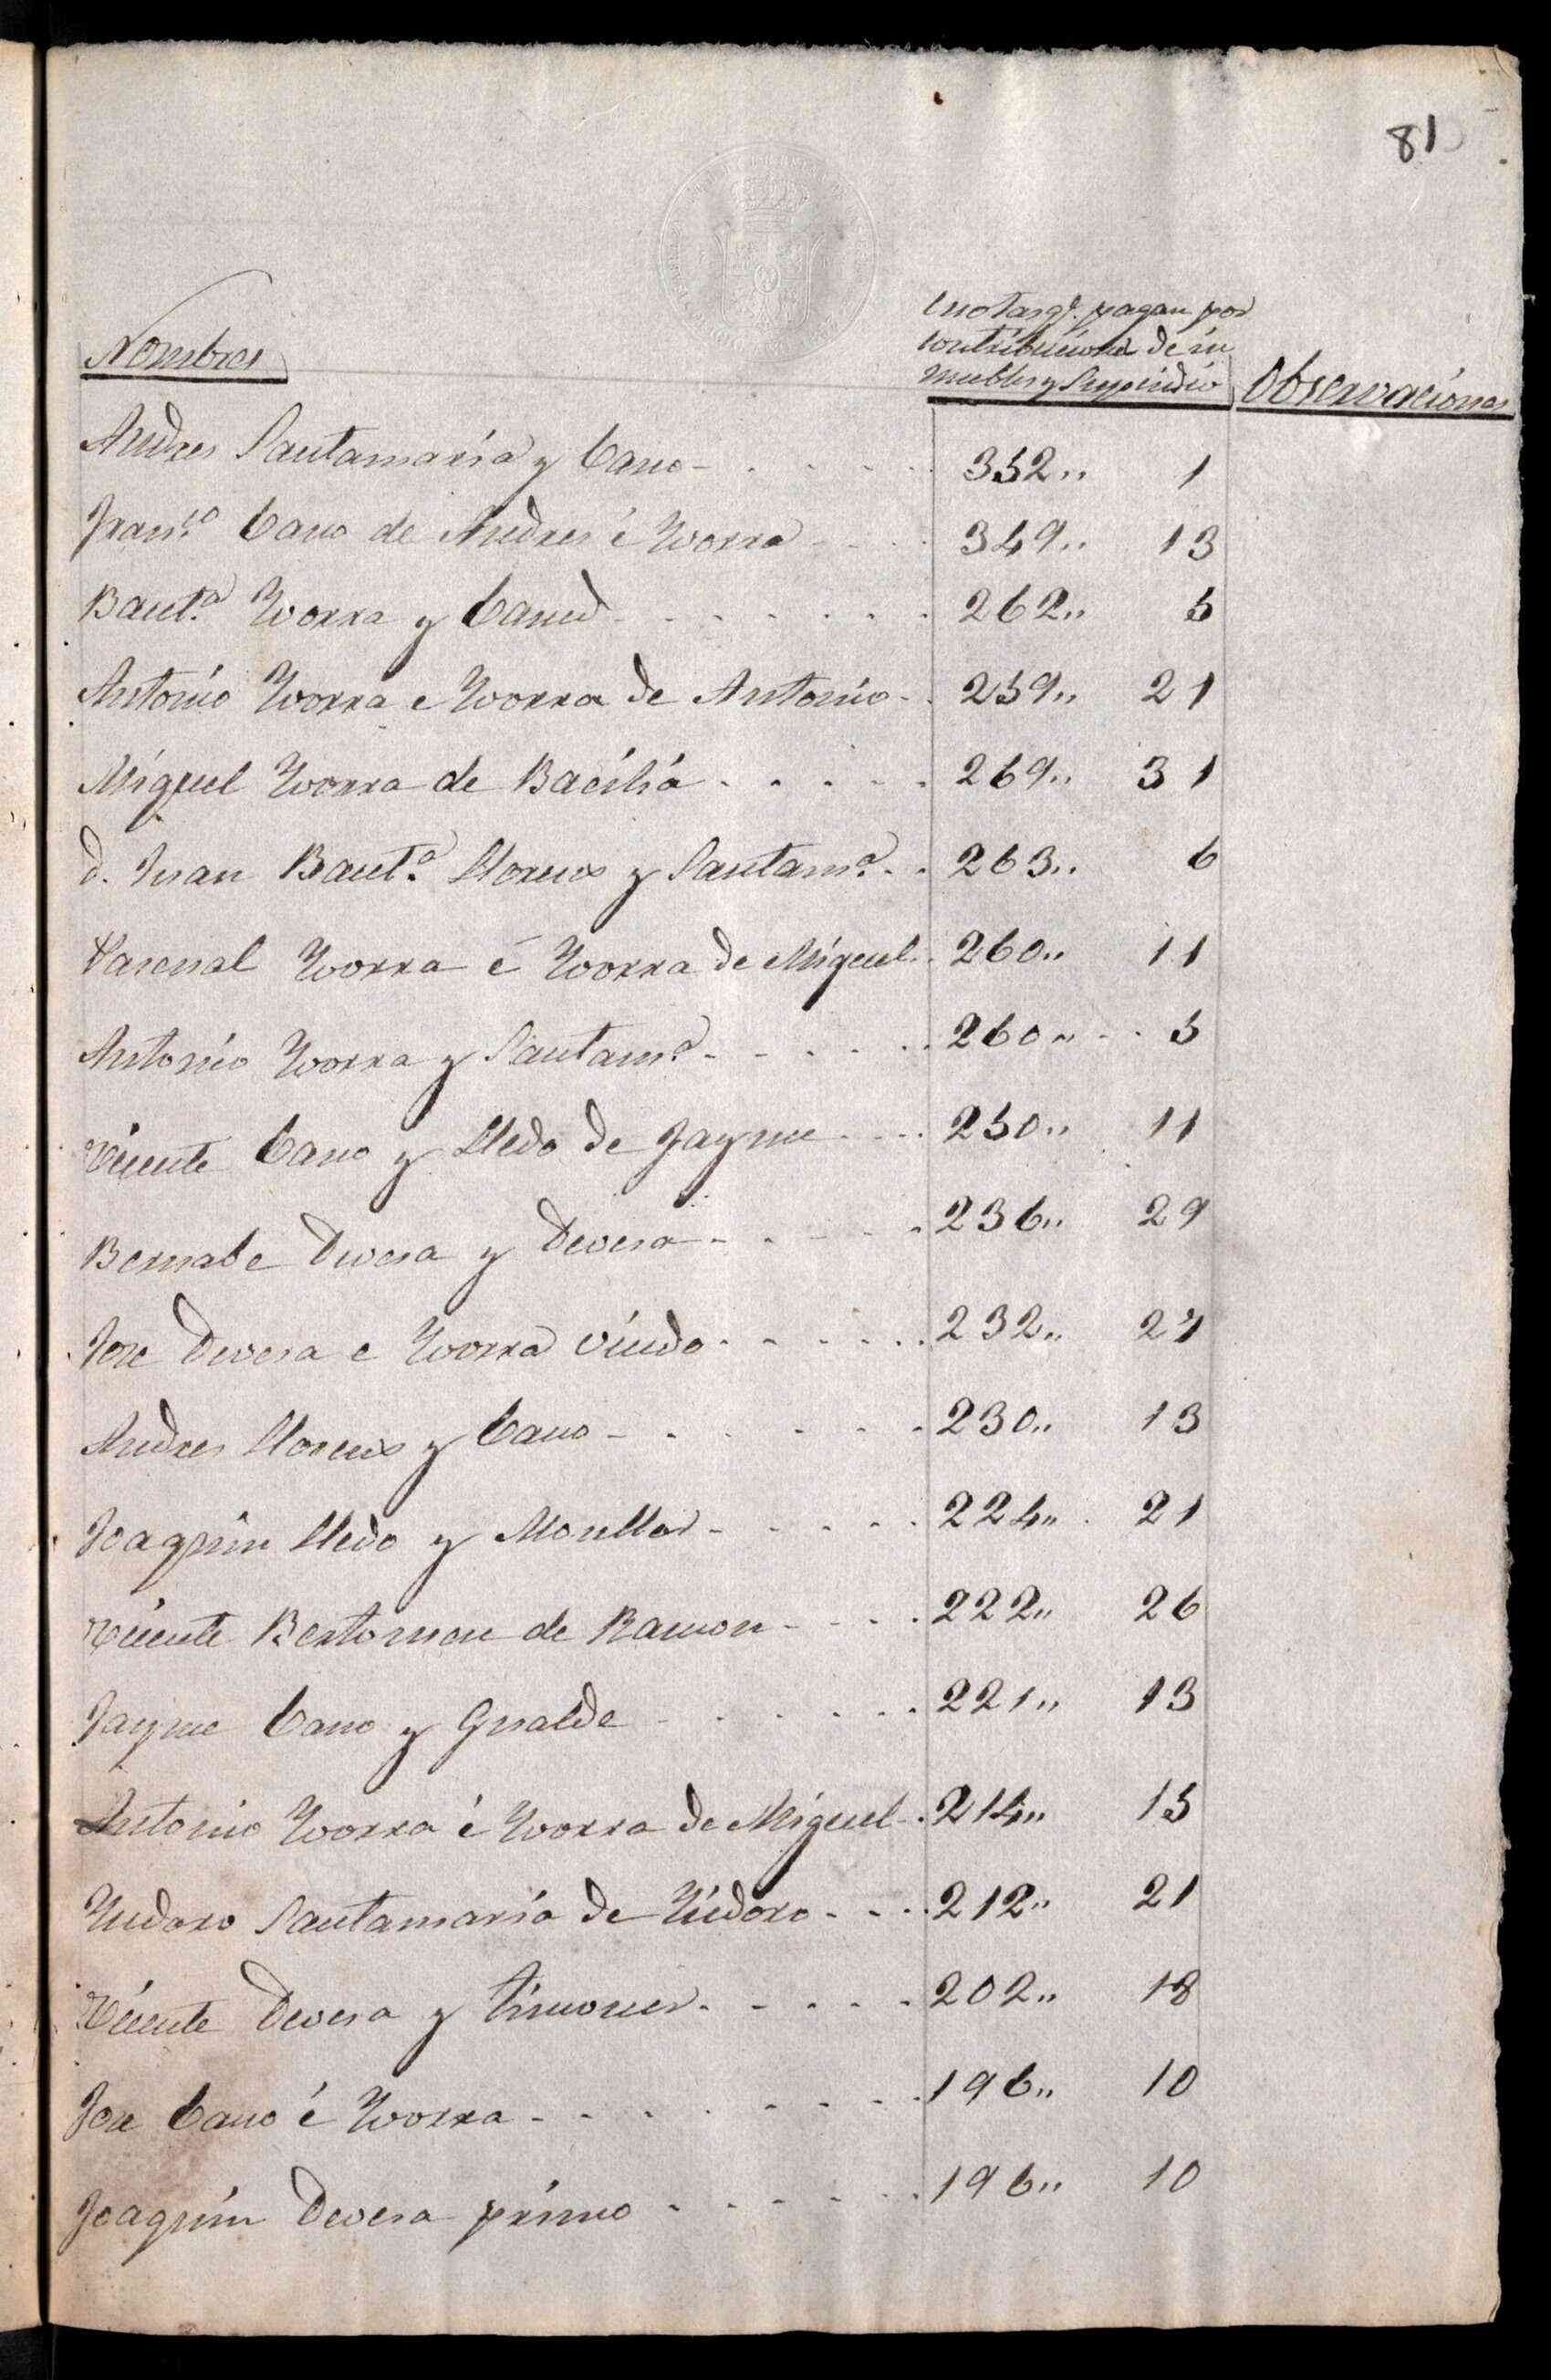 81
Nombres
Cuotas q.e pagan por
contribucion de in
muebles y Supsidio
Observaciones
Andres Santamaria y Cano 352,, 1
Fran.co Cano de Andres é Yvorra 349,, 13
Baut.a Yvorra y Cano 262,, 5
Antonio Yvorra e Yvorra de Antonio 259,, 21
Miguel Yvorra de Bacilia 269,, 31
D. Juan Baut.a Llorens y Santam.a 263,, 6
Pascual Yvorra é Yvorra de Miguel 260,, 11
Antonio Yvorra y Santam.a 260,, 5
Vicente Cano y Lledo de Jayme 250,, 11
Bernabe Devesa y Devesa 236,, 29
Jose Devesa e Yvorra viudo 232,, 27
Andres Llorens y Cano 230,, 13
Joaquin Lledo y Monllor 224,, 21
Vicente Bertomeu de Ramon 222,, 26
Jayme Cano y Gualde 221,, 13
Antonio Yvorra é Yvorra de Miguel 214,, 15
Ysidoro Santamaria de Ysidoro 212,, 21
Vicente Devesa y Timoner 202,, 18
Jose Cano é Yvorra 196,, 10
Joaquin Devesa primo 196,, 10